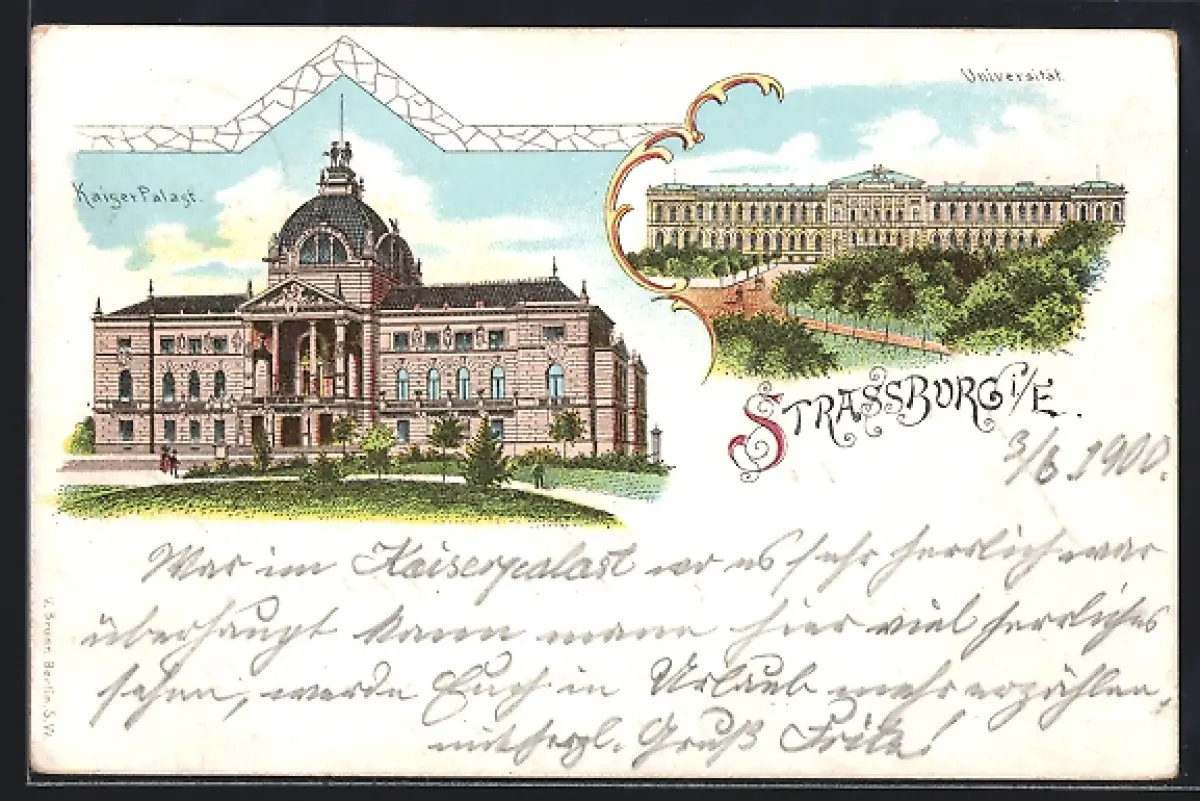 Universität.
Kaiser Palast.
STRASSBURG i/E.
3/6 1900.
War im Kaiserpalast wo es sehr herrlich war
überhaupt kann mann hier viel herrliches
sehen, werde Euch in Urlaub mehr erzählen,
mit herzl. Gruß Fritz!
V. Brunn Berlin. S.W.